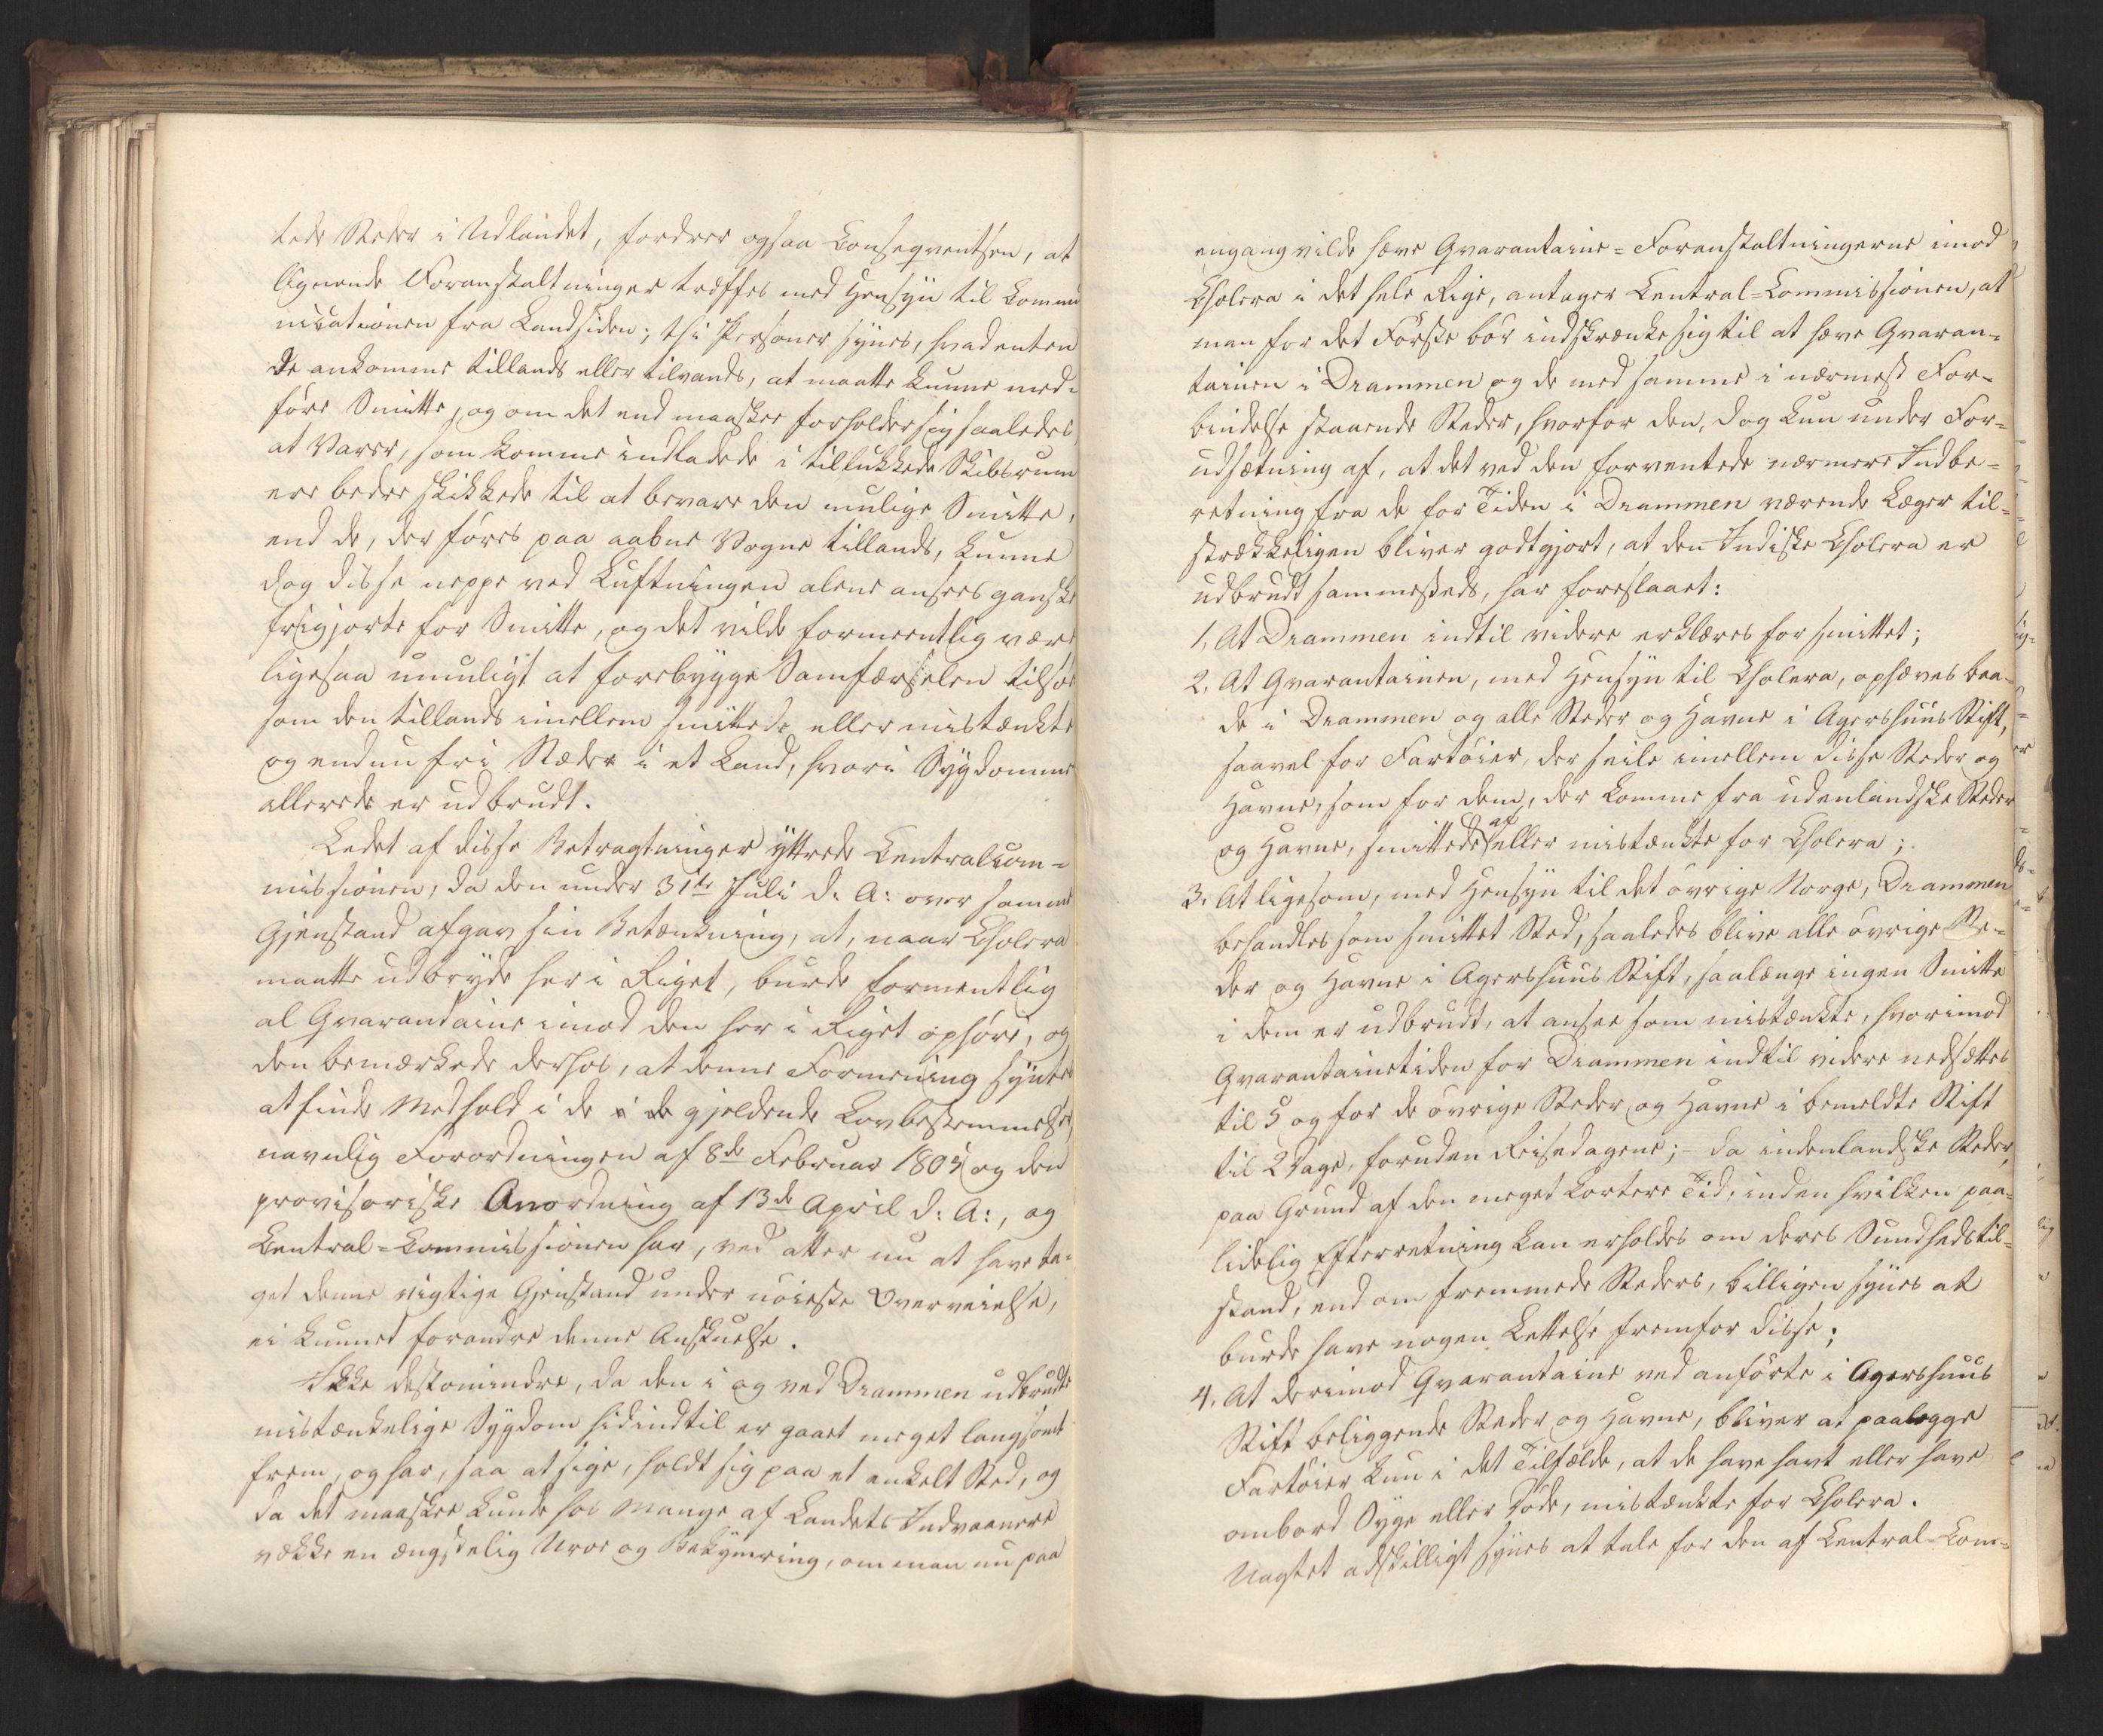 tede Steder i Udlandet, fordrer ogsaa Conseqventsen, at
lignende Foranstaltninger træffes med Hensyn til Commu
nicationen fra Landsiden; thi Personer synes, hvad enten
de ankomme tillands eller tilvands, at maatte kunne med-
føre Smitte, og om det end maaskee forholder sig saaledes
at Varer, som komme indladede i tillukkede Skibsrum
ere bedre skikkede til at bevare den mulige Smitte,
end de, der føres paa aabne Vogne tillands, kunne
dog disse neppe ved Luftningen alene ansees ganske
frigjorte for Smitte, og det vilde formeentlig være
ligesaa umuligt at forebygge Samfærselen tilsøes
som den tillands imellem smittede eller mistænkte
og endnu fri Stæder i et Land, hvori Sygdomme
allerede er udbrudt.
Ledet af disse Betragtninger yttrede Centralcom-
missionen, da den under 31te Juli d. A: over samme
Gjenstand afgav sin Betænkning, at, naar Cholera
maatte udbryde her i Riget, burde formentlig
al Qvarantaine imod den her i Riget ophøre, og
den bemærkede derhos, at denne Formening syntes
at finde Medhold i de i de gjeldende Lovbestemmelser,
navnlig Forordningen af 8de Februar 1805 og den
provisoriske Anordning af 13de April d: A:, og
Central-Commissionen har, ved atter nu at have ta-
get denne vigtige Gjenstand under nøieste Overveielse,
ei kunnet forandre denne Anskuelse.
Ikke destomindre, da den i og ved Drammen udbrudte
mistænkelige Sygdom hidindtil er gaaet meget langsomt
frem, og har, saa at sige, holdt sig paa et enkelt Sted, og
da det maaskee kunde hos Mange af Landets Indvaanere
vække en ængstelig Uroe og Bekymring, om man nu paa
engang vilde hæve Qvarantaine-Foranstaltningerne imod
Cholera i det hele Rige, antager Central-Commissionen, at
man for det Første bør indskrænke sig til at hæve Qvaran-
tainen i Drammen og de med samme i nærmest For-
bindelse staaende Steder, hvorfor den, dog kun under For-
udsætning af, at det ved den forventede nærmere Indbe-
retning fra de for Tiden i Drammen værende Læger til-
strækkeligen bliver godtgjort, at den Indiske Cholera er
udbrudt sammesteds, har foreslaaet:
1. At Drammen indtil videre erklæres for smittet;
2. At Qvarantainen, med Hensyn til Cholera, ophæves baa-
de i Drammen og alle Steder og Havne i Agershuus Stift,
saavel for Fartøier, der seile imellem disse Steder og
Havne, som for dem, der komme fra udenlandske Steder
og Havne, smittede af eller mistænkte for Cholera;
3. At ligesom, med Hensyn til det øvrige Norge, Drammen
behandles som smittet Sted, saaledes blive alle øvrige Ste-
der og Havne i Agershuus Stift, saalænge ingen Smitte
i dem er udbrudt, at ansee som mistænkte, hvorimod
Qvarantainetiden for Drammen indtil videre nedsættes
til 5 og for de øvrige Steder og Havne i bemeldte Stift
til 2 Dage, foruden Reisedagene; - da indenlandske Steder,
paa Grund af den meget kortere Tid, inden hvilken paa-
lidelig Efterretning kan erholdes om deres Sundhedstil-
stand, end om fremmede Steders, billigen synes at
burde have nogen Lettelse fremfor disse;
4. At derimod Qvarantaine ved anførte i Agershuus
Stift beliggende Steder og Havne, bliver at paalegge
Fartøier kun i det Tilfælde, at de have havt eller have
ombord Syge eller Døde, mistænkte for Cholera.
Uagtet adskilligt synes at tale for den af Central-Com-